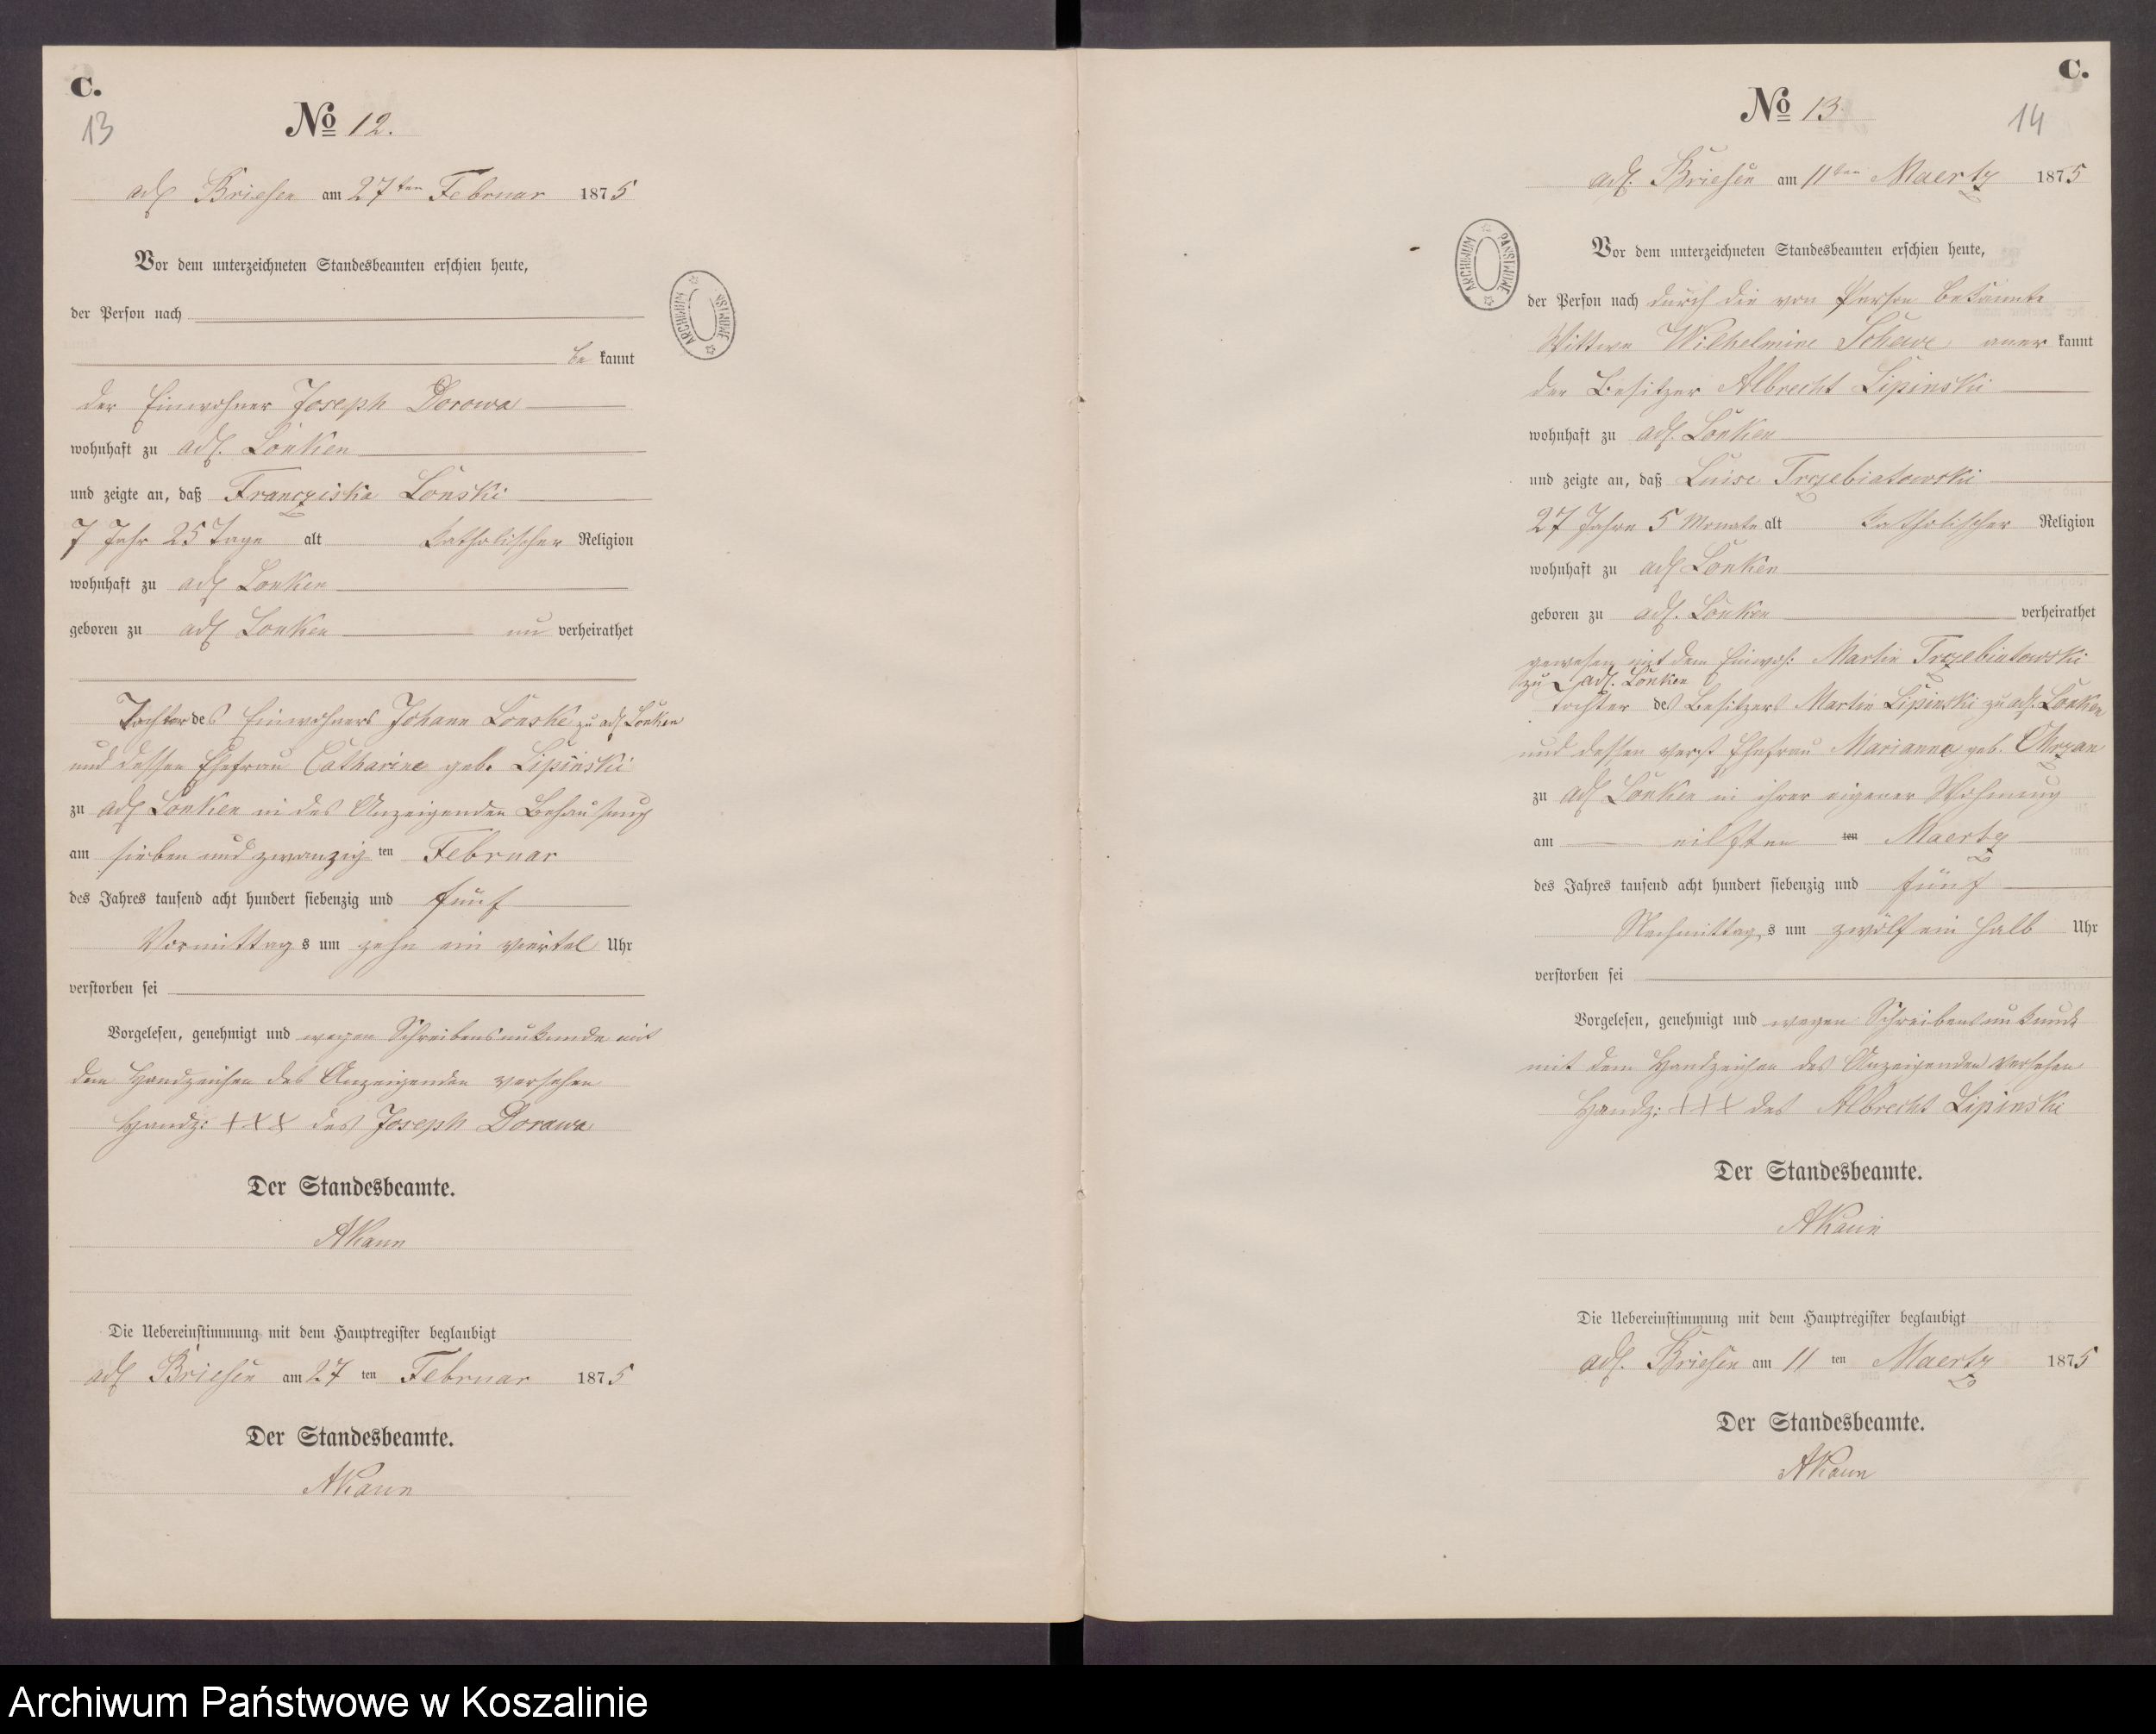 C.
13
No 12.
adl Briesen am 27ten Februar 1875
Vor dem unterzeichneten Standesbeamten erschien heute,
der Person nach
be kannt
der Einwohner Joseph Dorowa
wohnhaft zu adl. Lonken
und zeigte an, daß Francziska Lonski
7 Jahr 25 Tage alt katholischer Religion
wohnhaft zu adl Lonken
geboren zu adl Lonken un verheirathet
Tochter des Einwohners Johann Lonske zu adl Lonken
und dessen Ehefrau Catharine geb. Lipinski
zu adl Lonken in des Anzeigenden Behausung
am sieben und zwanzig ten Februar
des Jahres tausend acht hundert siebenzig und fünf
Vormittag s um zehn ein viertel Uhr
verstorben sei
Vorgelesen, genehmigt und wegen Schreibensunkunde mit
dem Handzeichen des Anzeigenden versehen
Handz: +++ des Joseph Dorawa
Der Standesbeamte.
AKaun
Die Uebereinstimmung mit dem Hauptregister beglaubigt
adl Briesen am 27 ten Februar 1875
Der Standesbeamte.
AKaun
ARCHIWUM PAŃSTWOWE
C.
14
No 13.
adl. Briesen am 11ten Maertz 1875
Vor dem unterzeichneten Standesbeamten erschien heute,
der Person nach durch die von Person bekannte
Wittwe Wilhelmine Schewe aner kannt
der Besitzer Albrecht Lipinski
wohnhaft zu adl. Lonken
und zeigte an, daß Luise Trzebiatowski
27 Jahre 5 Monate alt katholischer Religion
wohnhaft zu adl Lonken
geboren zu adl. Lonken verheirathet
gewesen mit dem Einwoh: Martin Trzebiatowski
zu adl. Lonken
Tochter des Besitzers Martin Lipinski zu adl. Lonken
und dessen verst Ehefrau Marianna geb. Chrzan
zu adl Lonken in ihrer eigener Wohnung
am eilften ten Maertz
des Jahres tausend acht hundert siebenzig und fünf
Nachmittag s um zwölf ein halb Uhr
verstorben sei
Vorgelesen, genehmigt und wegen Schreibensunkunde
mit dem Handzeichen des Anzeigenden versehen
Handz: +++ des Albrecht Lipinski
Der Standesbeamte.
AKaun
Die Uebereinstimmung mit dem Hauptregister beglaubigt
adl. Briesen am 11 ten Maertz 1875
Der Standesbeamte.
AKaun
ARCHIWUM PAŃSTWOWE
Archiwum Państwowe w Koszalinie